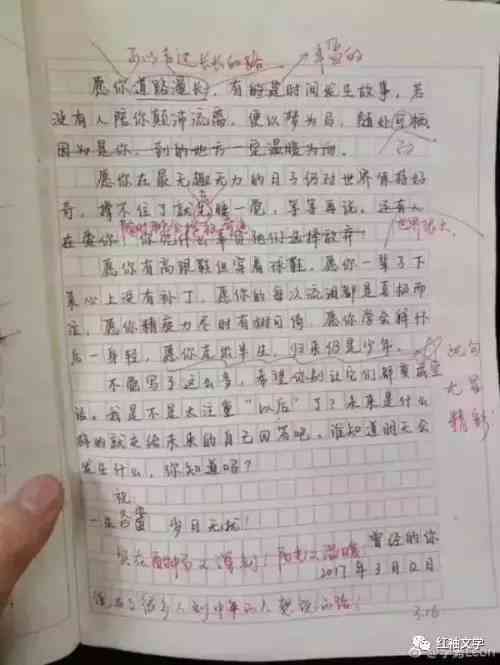 可以走过长长的路 丰富的
愿你道路漫长，有的是时间发生故事，若
没有人陪你颠沛流离，便以梦为马，随处可栖
因为是你，到的地方一定温暖为向。
愿你在最无趣无力的日子仍对世界保持好
奇，撑不住了就先睡一觉，等等再说，还有人
在爱你，你凭什么辜负他们选择放弃！
世界很大
愿你有高跟鞋但穿着球鞋，愿你一辈子下
来心上没有补丁，愿你的每次流泪都是喜极而
泣，愿你精疲力尽时有树可倚，愿你学会释怀
后一身轻，愿你走出半生，归来仍是少年。
沉句
尤显
精彩
不愿写了这么多，希望你别让它们都变成空
话。我是不是太注重“以后”了？未来是什么
样的就交给未来的自己回答吧，谁知道明天会
发生什么，你知道吗？
祝
岁月无忧！
曾经的你
2017年3月12日
3.16
红袖文学